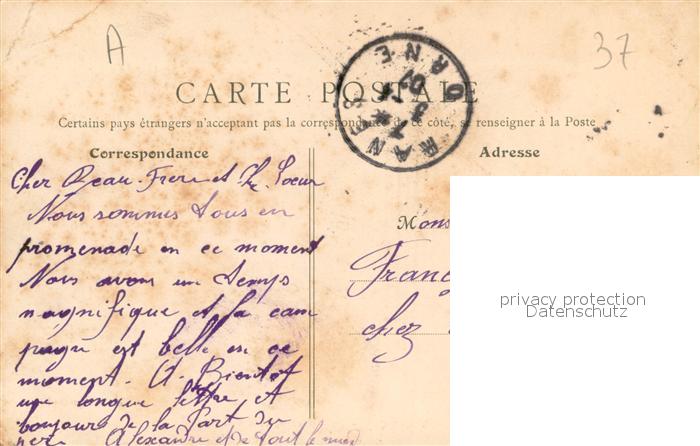 A
37
CARTE POSTALE
Certains pays étrangers n'acceptant pas la correspondance de ce côté, se renseigner à la Poste
Correspondance
Adresse
ORNE
Cher Beau-Frere et Soeur
Nous sommes tous en
promenade en ce moment
Nous avons un temps
magnifique et la cam
pagne est belle en ce
moment. A Bientot
une longue lettre et
bonjours de la Part du
Alexandre et de tout le
Mons
Franç
chez
privacy protection
Datenschutz